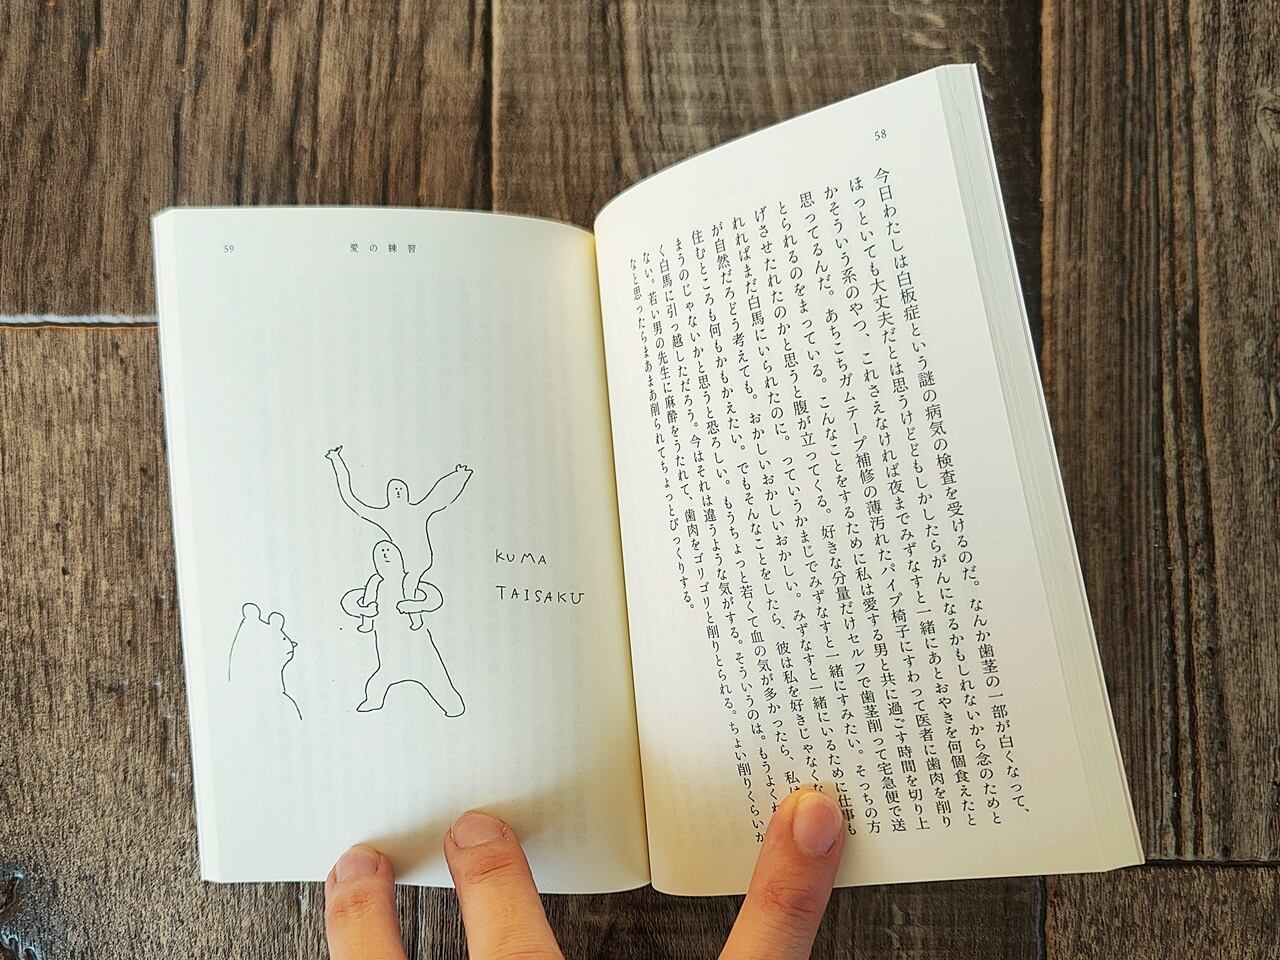 58
今日わたしは白板症という謎の病気の検査を受けるのだ。なんか歯茎の一部が白くなって、
ほっといても大丈夫だとは思うけどどもしかしたらがんになるかもしれないから念のためと
かそういう系のやつ、これさえなければ夜までみずなすと一緒にあとおやきを何個食えたと
思ってるんだ。あちこちガムテープ補修の薄汚れたパイプ椅子にすわって医者に歯肉を削り
とられるのをまっている。こんなことをするために私は愛する男と共に過ごす時間を切り上
げさせたれたのかと思うと腹が立ってくる。好きな分量だけセルフで歯茎削って宅急便で送
れればまだ白馬にいられたのに。っていうかまじでみずなすと一緒にすみたい。そっちの方
が自然だろどう考えても。おかしいおかしいおかしい。みずなすと一緒にいるために仕事も
住むところも何もかもかえたい。でもそんなことをしたら、彼は私を好きじゃなくな
まうのじゃないかと思うと恐ろしい。もうちょっと若くて血の気が多かったら、私は
く白馬に引っ越しただろう。今はそれは違うような気がする。そういうのは。もうよくわ
ない。若い男の先生に麻酔をうたれて、歯肉をゴリゴリと削りとられる。ちょい削りくらいか
なと思ったらまあまあ削られてちょっとびっくりする。
59
愛の練習
KUMA
TAISAKU